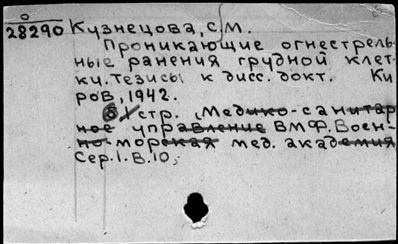 0
28290 Кузнецова, С.М.
Проникающие огнестрель-
ные ранения грудной клет-
ки. Тезисы к дисс. докт. Ки
ров, 1942.
стр. (Медико-санитар
ное управление ВМФ. Воен-
но-морская мед. академия
Сер. I. В. 10,